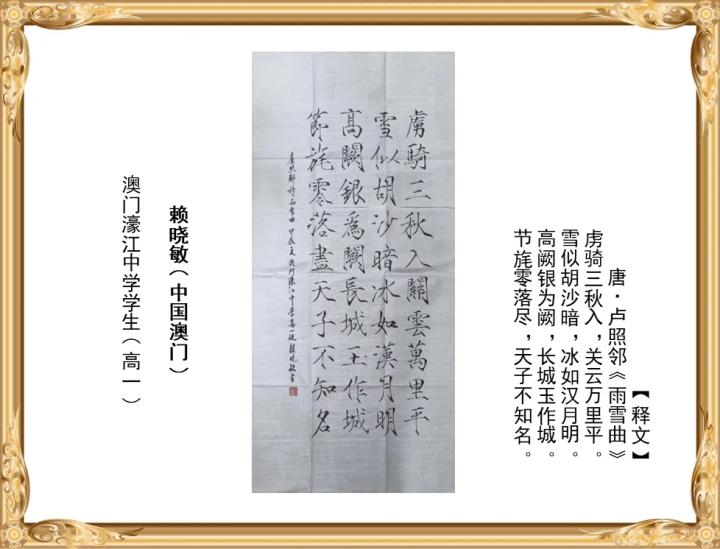 【释文】
唐·卢照邻《雨雪曲》
虏骑三秋入，关云万里平。
雪似胡沙暗，冰如汉月明。
高阙银为阙，长城玉作城。
节旄零落尽，天子不知名。
虜騎三秋入關雲萬里平
雪似胡沙暗冰如漢月明
高闕銀爲闕長城玉作城
節旄零落盡天子不知名
盧照鄰詩雨雪曲 甲辰夏 澳門濠江中學高一級 賴曉敏書
赖晓敏（中国澳门）
澳门濠江中学学生（高一）